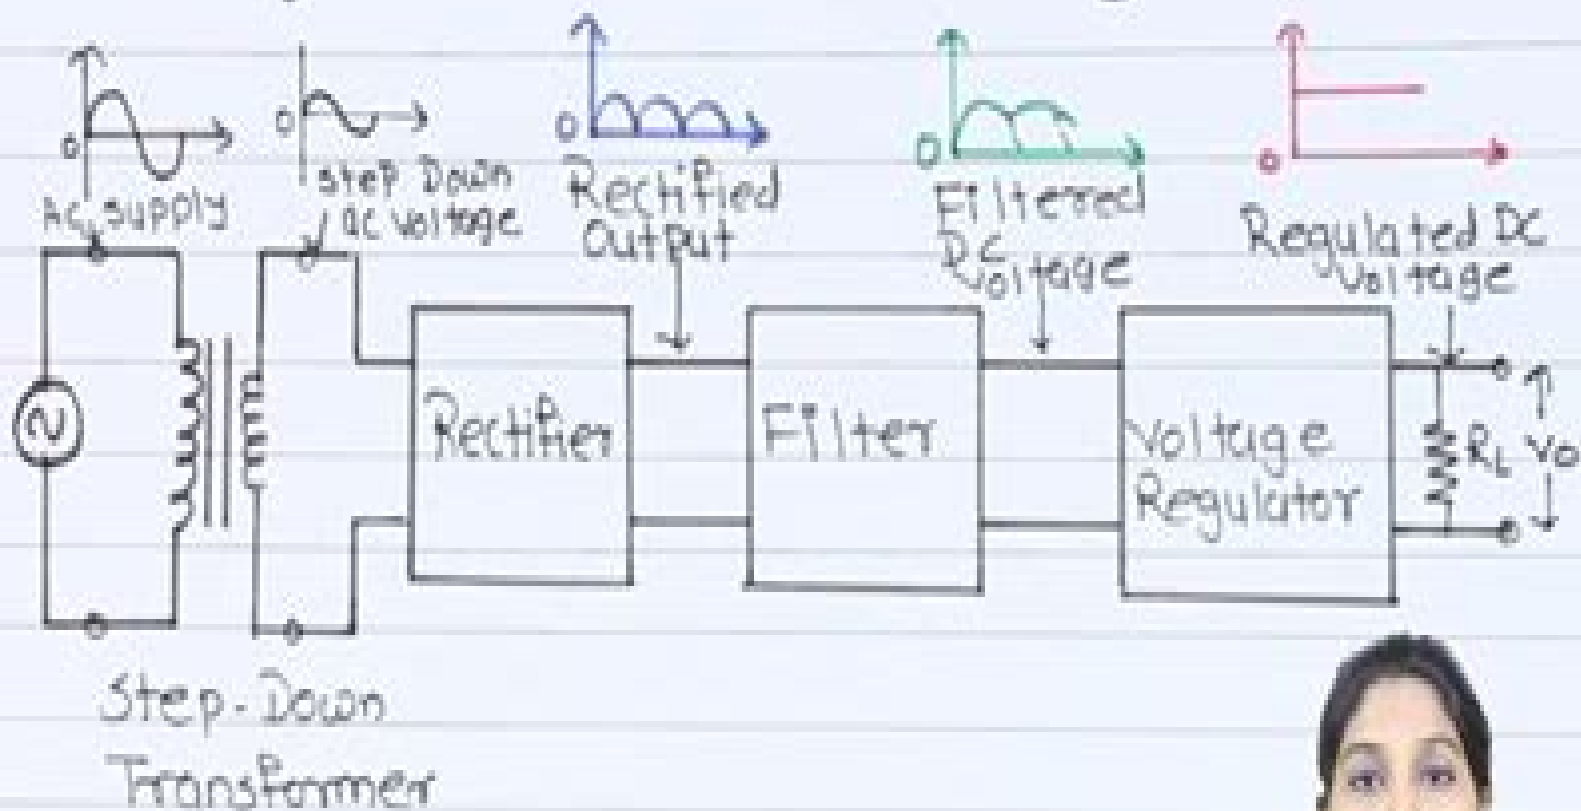 0
AC supply
0
Step Down
ac voltage
0
Rectified
Output
0
Filtered
DC
voltage
0
Regulated DC
voltage
Rectifier
Filter
Voltage
Regulator
RL
Vo
Step-Down
Transformer